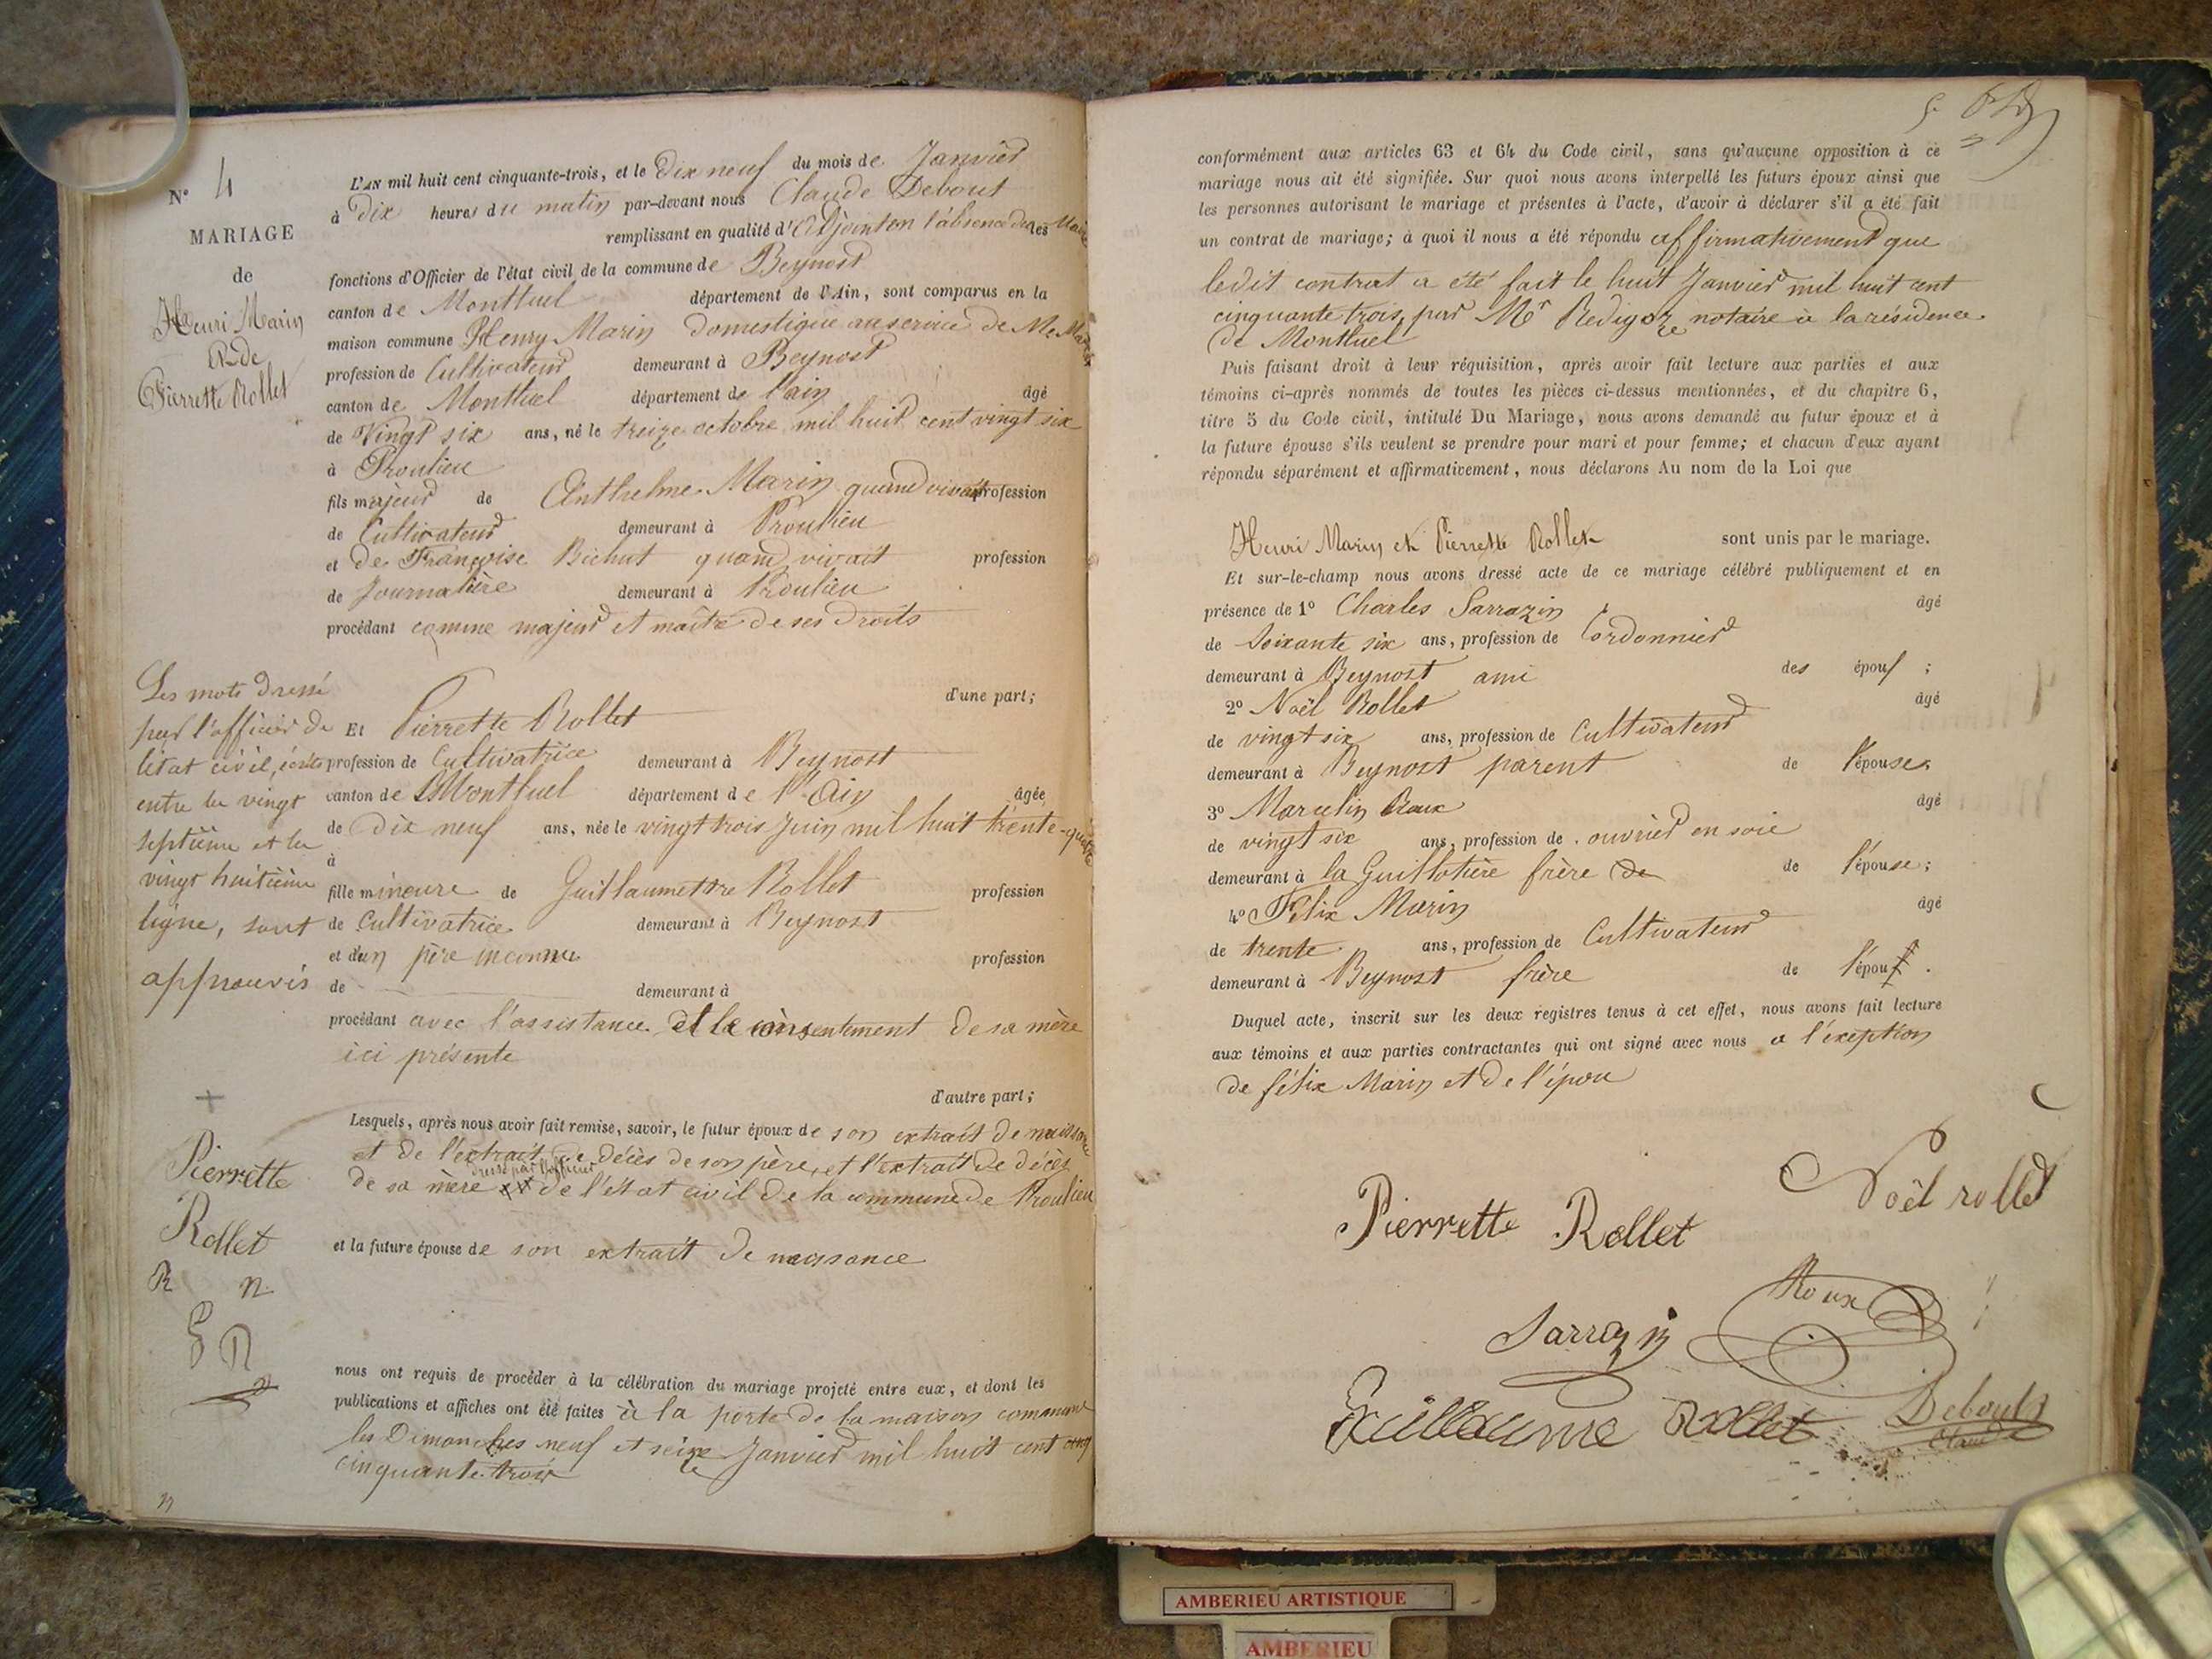 N° 4
MARIAGE
de
Henri Marin
& de
Pierrette Rollet
L'AN mil huit cent cinquante-trois, et le Dix neuf du mois de Janvier
à Dix heures du matin par-devant nous Claude Debout
remplissant en qualité d'Adjoint en l'absence du Maire les
fonctions d'Officier de l'état civil de la commune de Beynost
canton de Montluel département de l'Ain, sont comparus en la
maison commune Henry Marin Domestique au service de Mr
profession de Cultivateur demeurant à Beynost
canton de Montluel département de l'ain âgé
de Vingt six ans, né le treize octobre mil huit cent vingt six
à Proulieu
fils majeur de Anthelme Marin quand vivait profession
de Cultivateur demeurant à Proulieu
et de Françoise Bichut quand vivait profession
de Journalière demeurant à Proulieu
procédant comme majeur et maître de ses droits
d'une part;
Et Pierrette Rollet
profession de Cultivatrice demeurant à Beynost
canton de Montluel département de l'Ain âgée
de dix neuf ans, née le vingt trois Juin mil huit trente-quatre
à
fille mineure de Guillaumettre Rollet profession
de Cultivatrice demeurant à Beynost
et d'un père inconnu profession
de demeurant à
procédant avec l'assistance et le consentement de sa mère
ici présente
d'autre part;
Les mots dressé
par l'officier de
l'état civil, écrits
entre la vingt
septième et la
vingt huitième
ligne, sont
approuvés
+
Pierrette
Rollet
R n
G R
Lesquels, après nous avoir fait remise, savoir, le futur époux de son extrait de naissance
et de l'extrait de décès de son père, et l'extrait de décès
dressé par l'officier
de sa mère de l'état civil de la commune de Proulieu
et la future épouse de son extrait de naissance
nous ont requis de procéder à la célébration du mariage projeté entre eux, et dont les
publications et affiches ont été faites à la porte de la maison commune
les Dimanches neuf et seize Janvier mil huit cent cinq
cinquante-trois
conformément aux articles 63 et 64 du Code civil, sans qu'aucune opposition à ce
mariage nous ait été signifiée. Sur quoi nous avons interpellé les futurs époux ainsi que
les personnes autorisant le mariage et présentes à l'acte, d'avoir à déclarer s'il a été fait
un contrat de mariage; à quoi il nous a été répondu affirmativement que
ledit contrat a été fait le huit Janvier mil huit cent
cinquante trois, par Mr notaire à la résidence
de Montluel
Puis faisant droit à leur réquisition, après avoir fait lecture aux parties et aux
témoins ci-après nommés de toutes les pièces ci-dessus mentionnées, et du chapitre 6,
titre 5 du Code civil, intitulé Du Mariage, nous avons demandé au futur époux et à
la future épouse s'ils veulent se prendre pour mari et pour femme; et chacun d'eux ayant
répondu séparément et affirmativement, nous déclarons Au nom de la Loi que
Henri Marin et Pierrette Rollet sont unis par le mariage.
Et sur-le-champ nous avons dressé acte de ce mariage célébré publiquement et en
présence de 1° Charles Sarrazin âgé
de Soixante six ans, profession de Cordonnier
demeurant à Beynost ami des épou ;
2° Noël Rollet âgé
de vingt six ans, profession de Cultivateur
demeurant à Beynost parent de l'épouse.
3° Marcelin Roux âgé
de vingt six ans, profession de ouvrier en soie
demeurant à la Guillotière frère de de l'épouse;
4° Félix Marin âgé
de trente ans, profession de Cultivateur
demeurant à Beynost frère de l'épou .
Duquel acte, inscrit sur les deux registres tenus à cet effet, nous avons fait lecture
aux témoins et aux parties contractantes qui ont signé avec nous a l'exeption
de félix Marin et de l'épou
Pierrette Rollet
Noël rollet
Roux
Sarrazin
Guillaume Rollet
Debout
Claude
AMBERIEU ARTISTIQUE
AMBERIEU